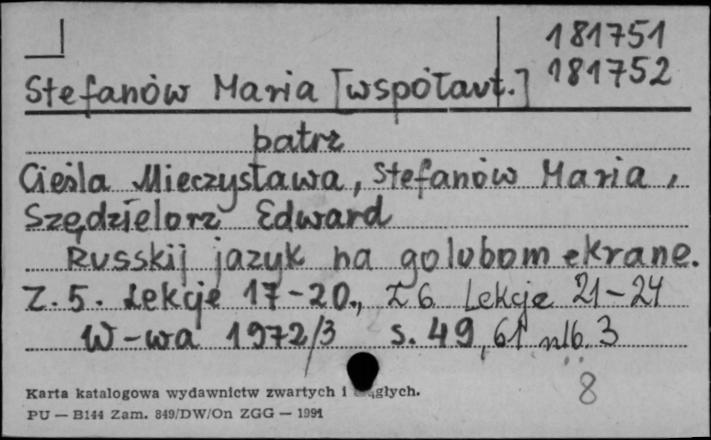 181751
Stefanów Maria [współaut.] 181752
patrz
Cieśla Mieczysława, Stefanów Maria,
Szędzielorz Edward
Russkij jazyk na golubom ekrane.
Z. 5. Lekcje 17-20., Z 6 Lekcje 21-24
W-wa 1972/3 s. 49, 61 nlb. 3
8
Karta katalogowa wydawnictw zwartych i głych.
PU — B144 Zam. 849/DW/On ZGG — 1991